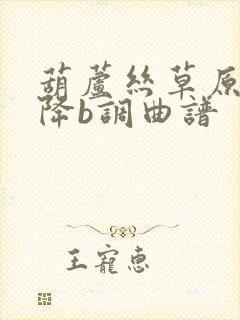 葫蘆絲草原
降b調曲譜
王寵惠